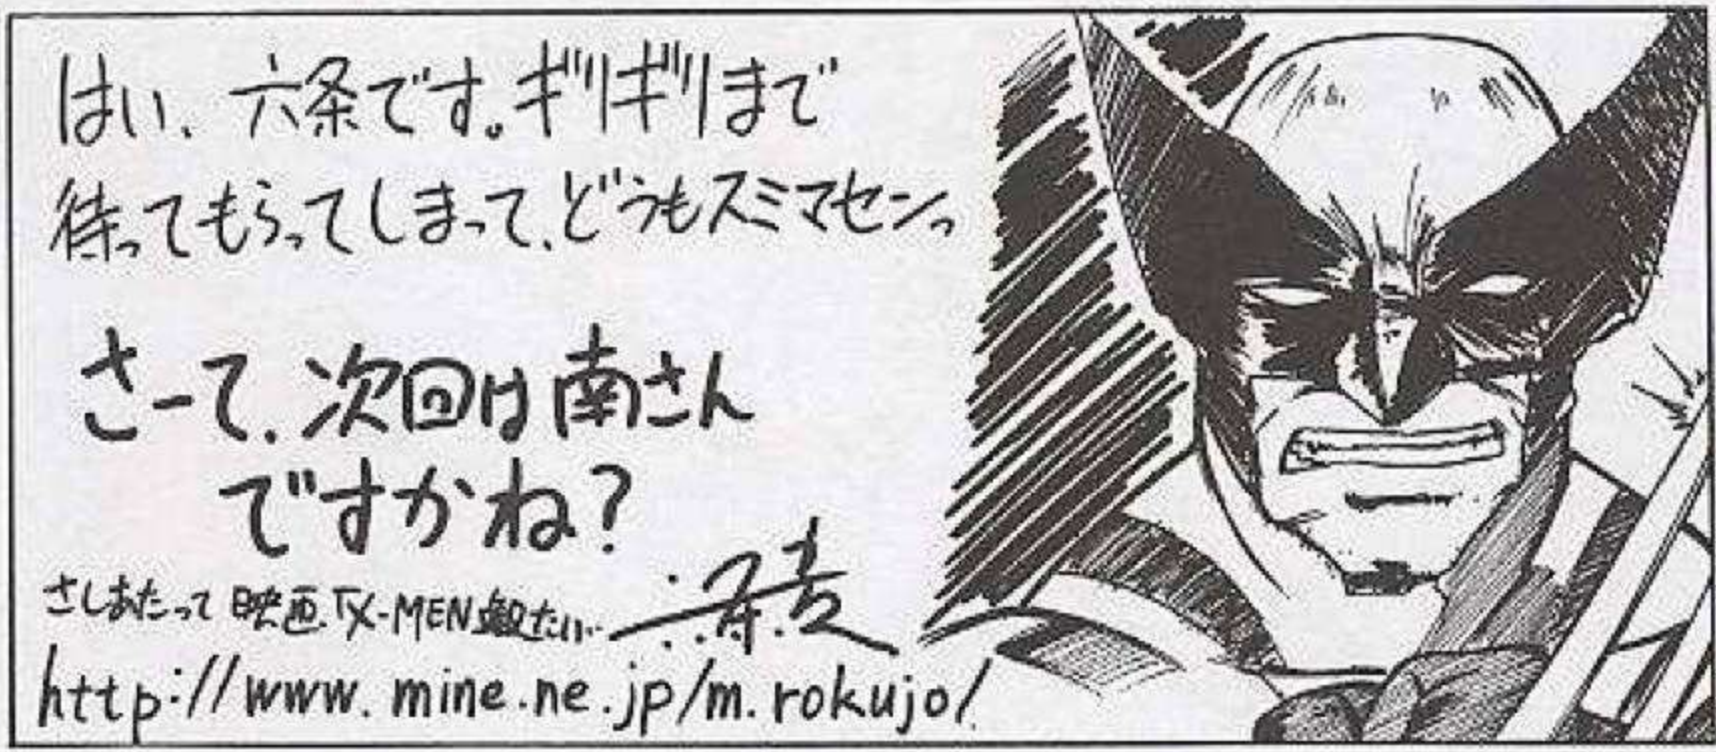 はい、六条です。ギリギリまで
待ってもらってしまって、どうもスミマセンっ
さーて、次回は南さん
ですかね?
さしあたって 映画「X-MEN観たい…
http://www.mine.ne.jp/m.rokujo/